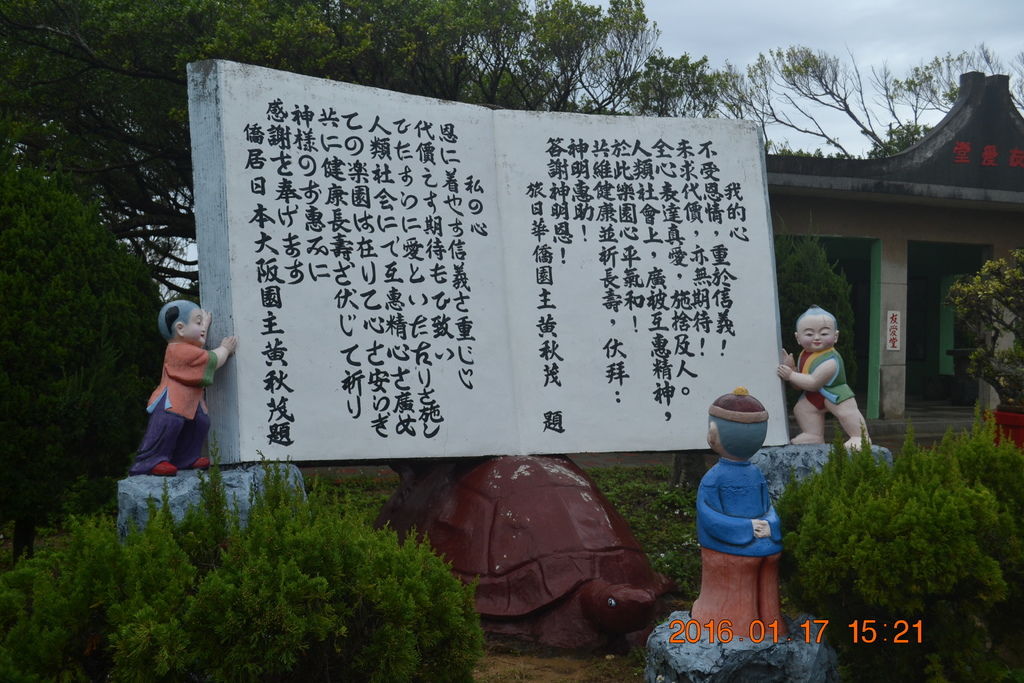 我的心
不受恩情，重於信義！
未求代價，亦無期待！
全心表達真愛，施捨及人。
人類社會上，廣被互惠精神，
於此樂園心平氣和！
共維健康並祈長壽，伏拜：
神明惠助！
答謝神明恩！
旅日華僑園主黃秋茂 題
私の心
恩に着せず信義を重じ
代價えす期待もひ致い
ひたすらに愛といたわりを施し
人類社会にて互惠精心を廣め
ての楽園は在りて心を安らぎ
共に健康長壽を伏して祈り
神様のお惠みに
感謝を奉げます
僑居日本大阪園主黃秋茂題
友愛堂
友愛堂
2016.01.17 15:21